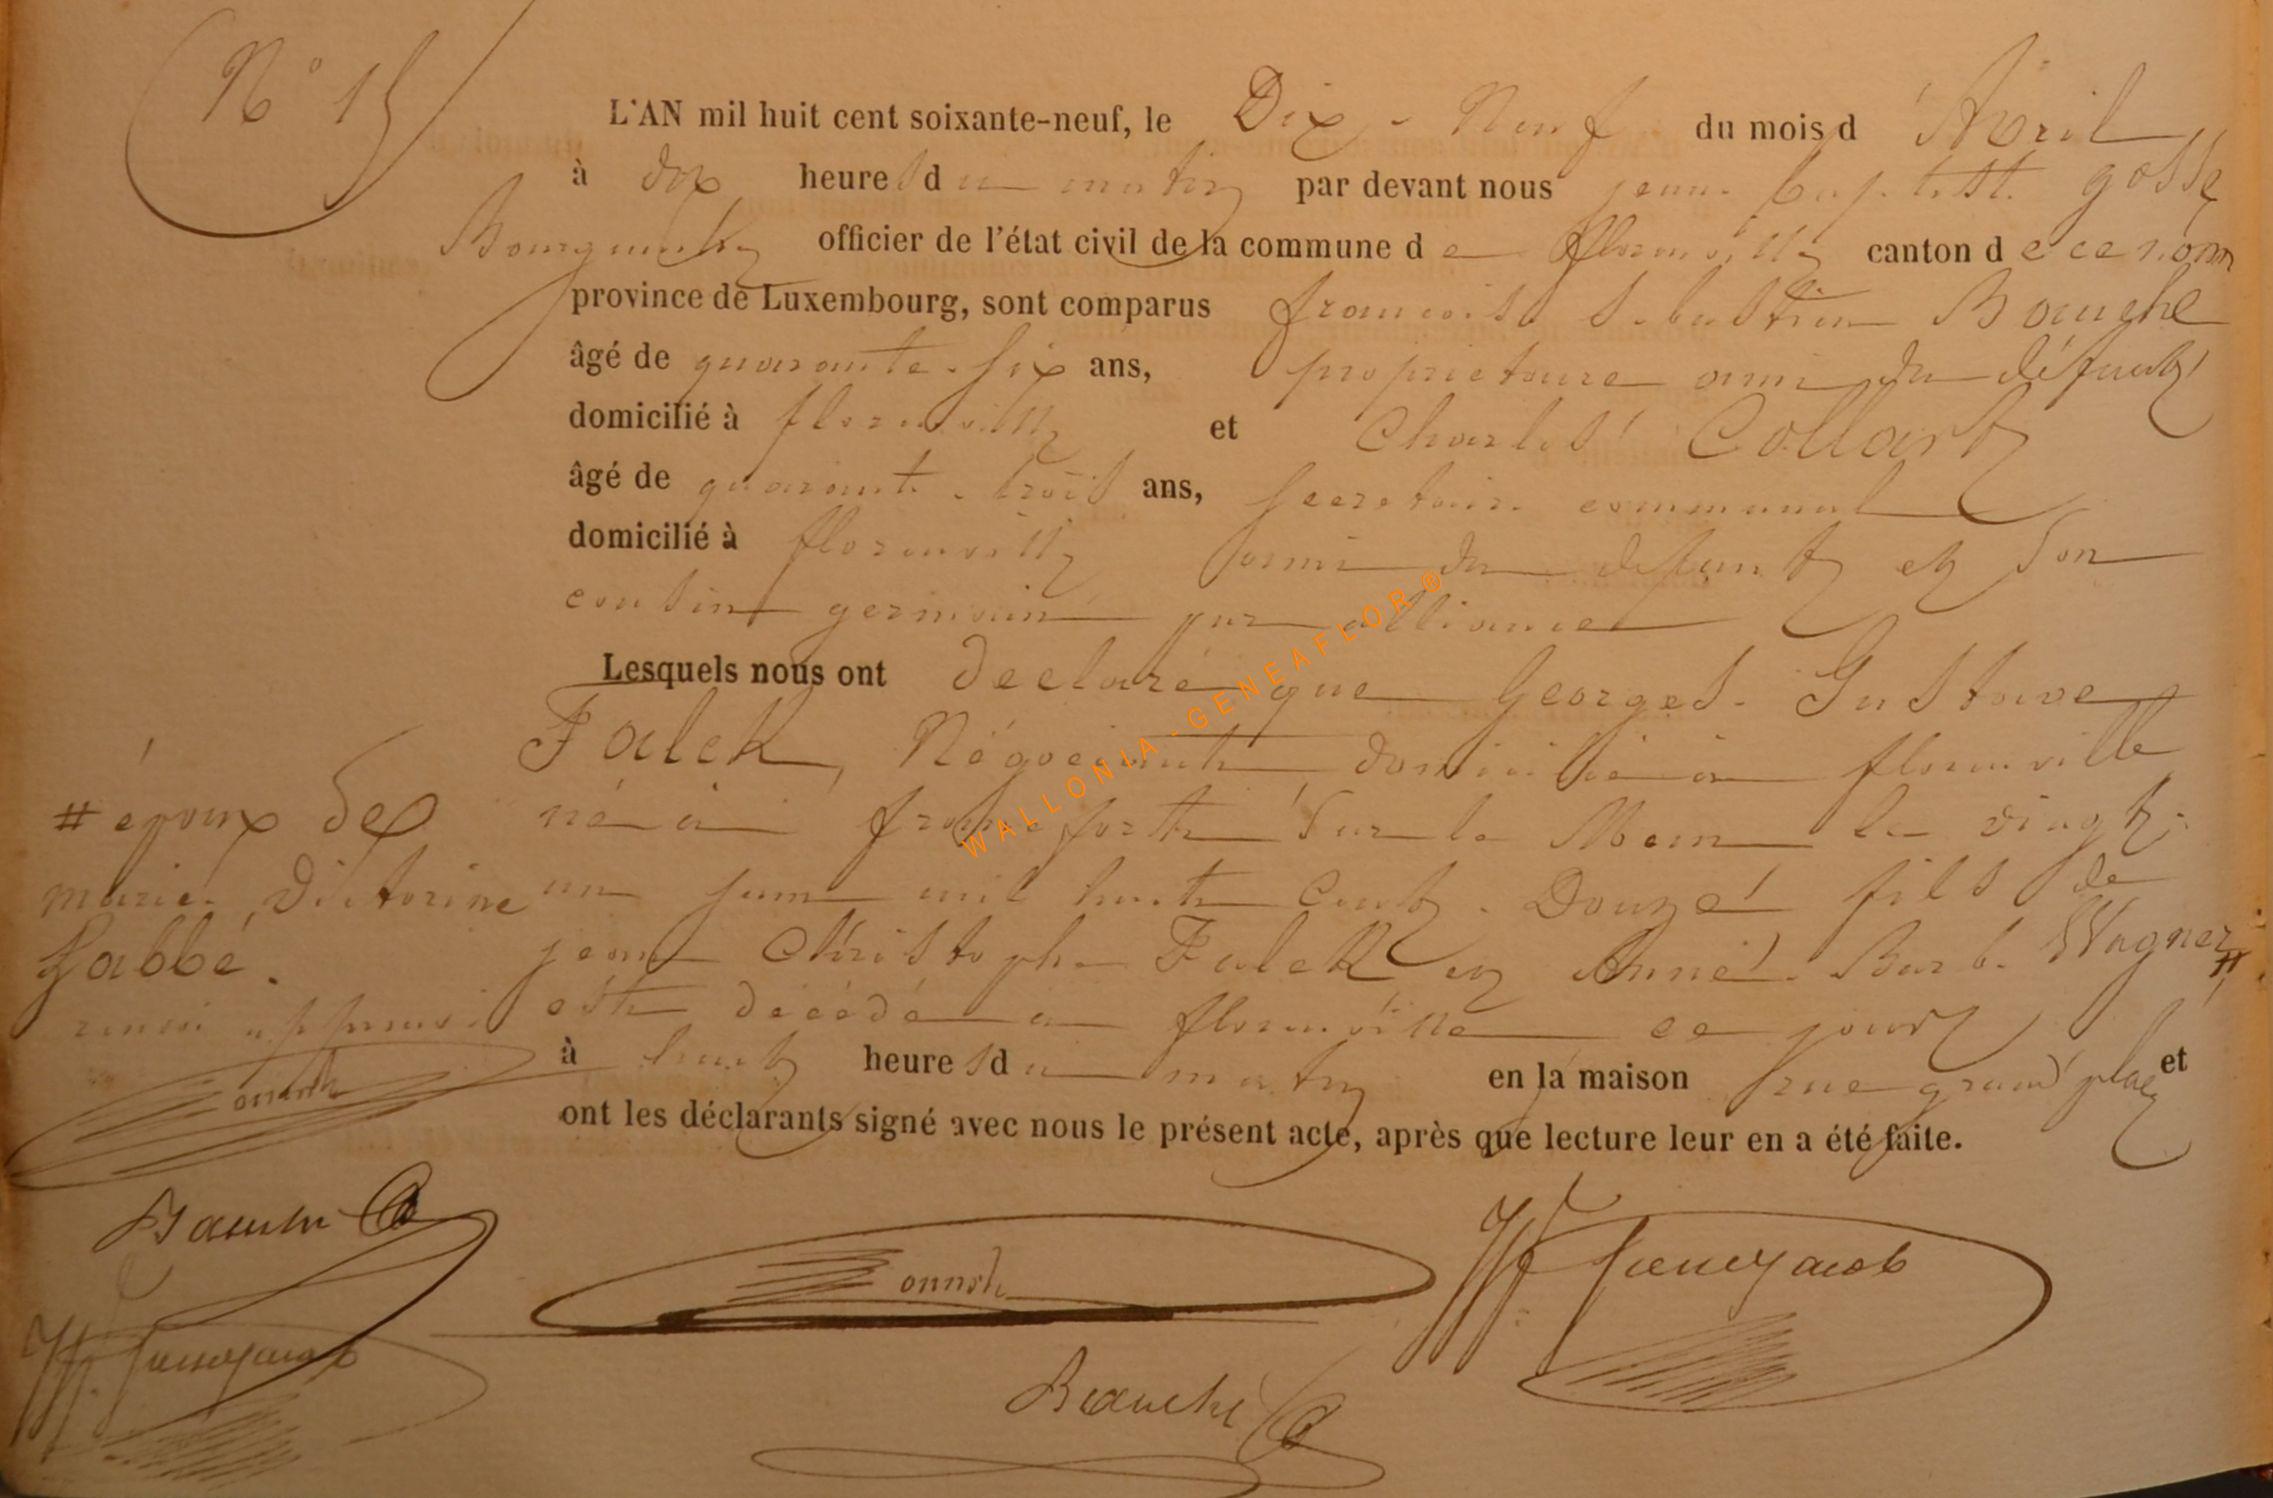 N° 15
L'AN mil huit cent soixante-neuf, le Dix-Neuf du mois d'Avril
à dix heures du matin par devant nous jean baptiste gosse
Bourgmestre officier de l'état civil de la commune de florenville canton de ce nom
province de Luxembourg, sont comparus francois Sebastien Bauche
âgé de quarante-six ans, proprietaire ami du défunt
domicilié à florenville et Charles Collart
âgé de quarante-trois ans, secretaire communal
domicilié à florenville ami du défunt et son
cousin germain par alliance
Lesquels nous ont declaré que Georges Gustave
Falck, Négociant domicilié à florenville
né à francfort sur le Mein le vingt-
un juin mil huit cent Douze fils de
jean Christophe Falck et Anne Barb. Wagner #
est décédé à florenville ce jour
à huit heures du matin en la maison rue grand place et
ont les déclarants signé avec nous le présent acte, après que lecture leur en a été faite.
# époux de
marie Victorine
Labbé.
renvoi approuvé
Bauche
Bauche
WALLONIA-GENEAFLOR®